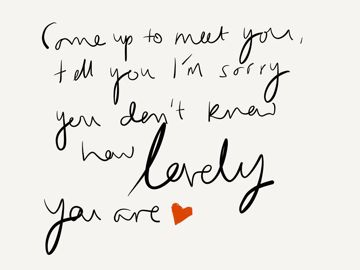 Come up to meet you,
tell you I'm sorry
you don't know
how lovely
you are